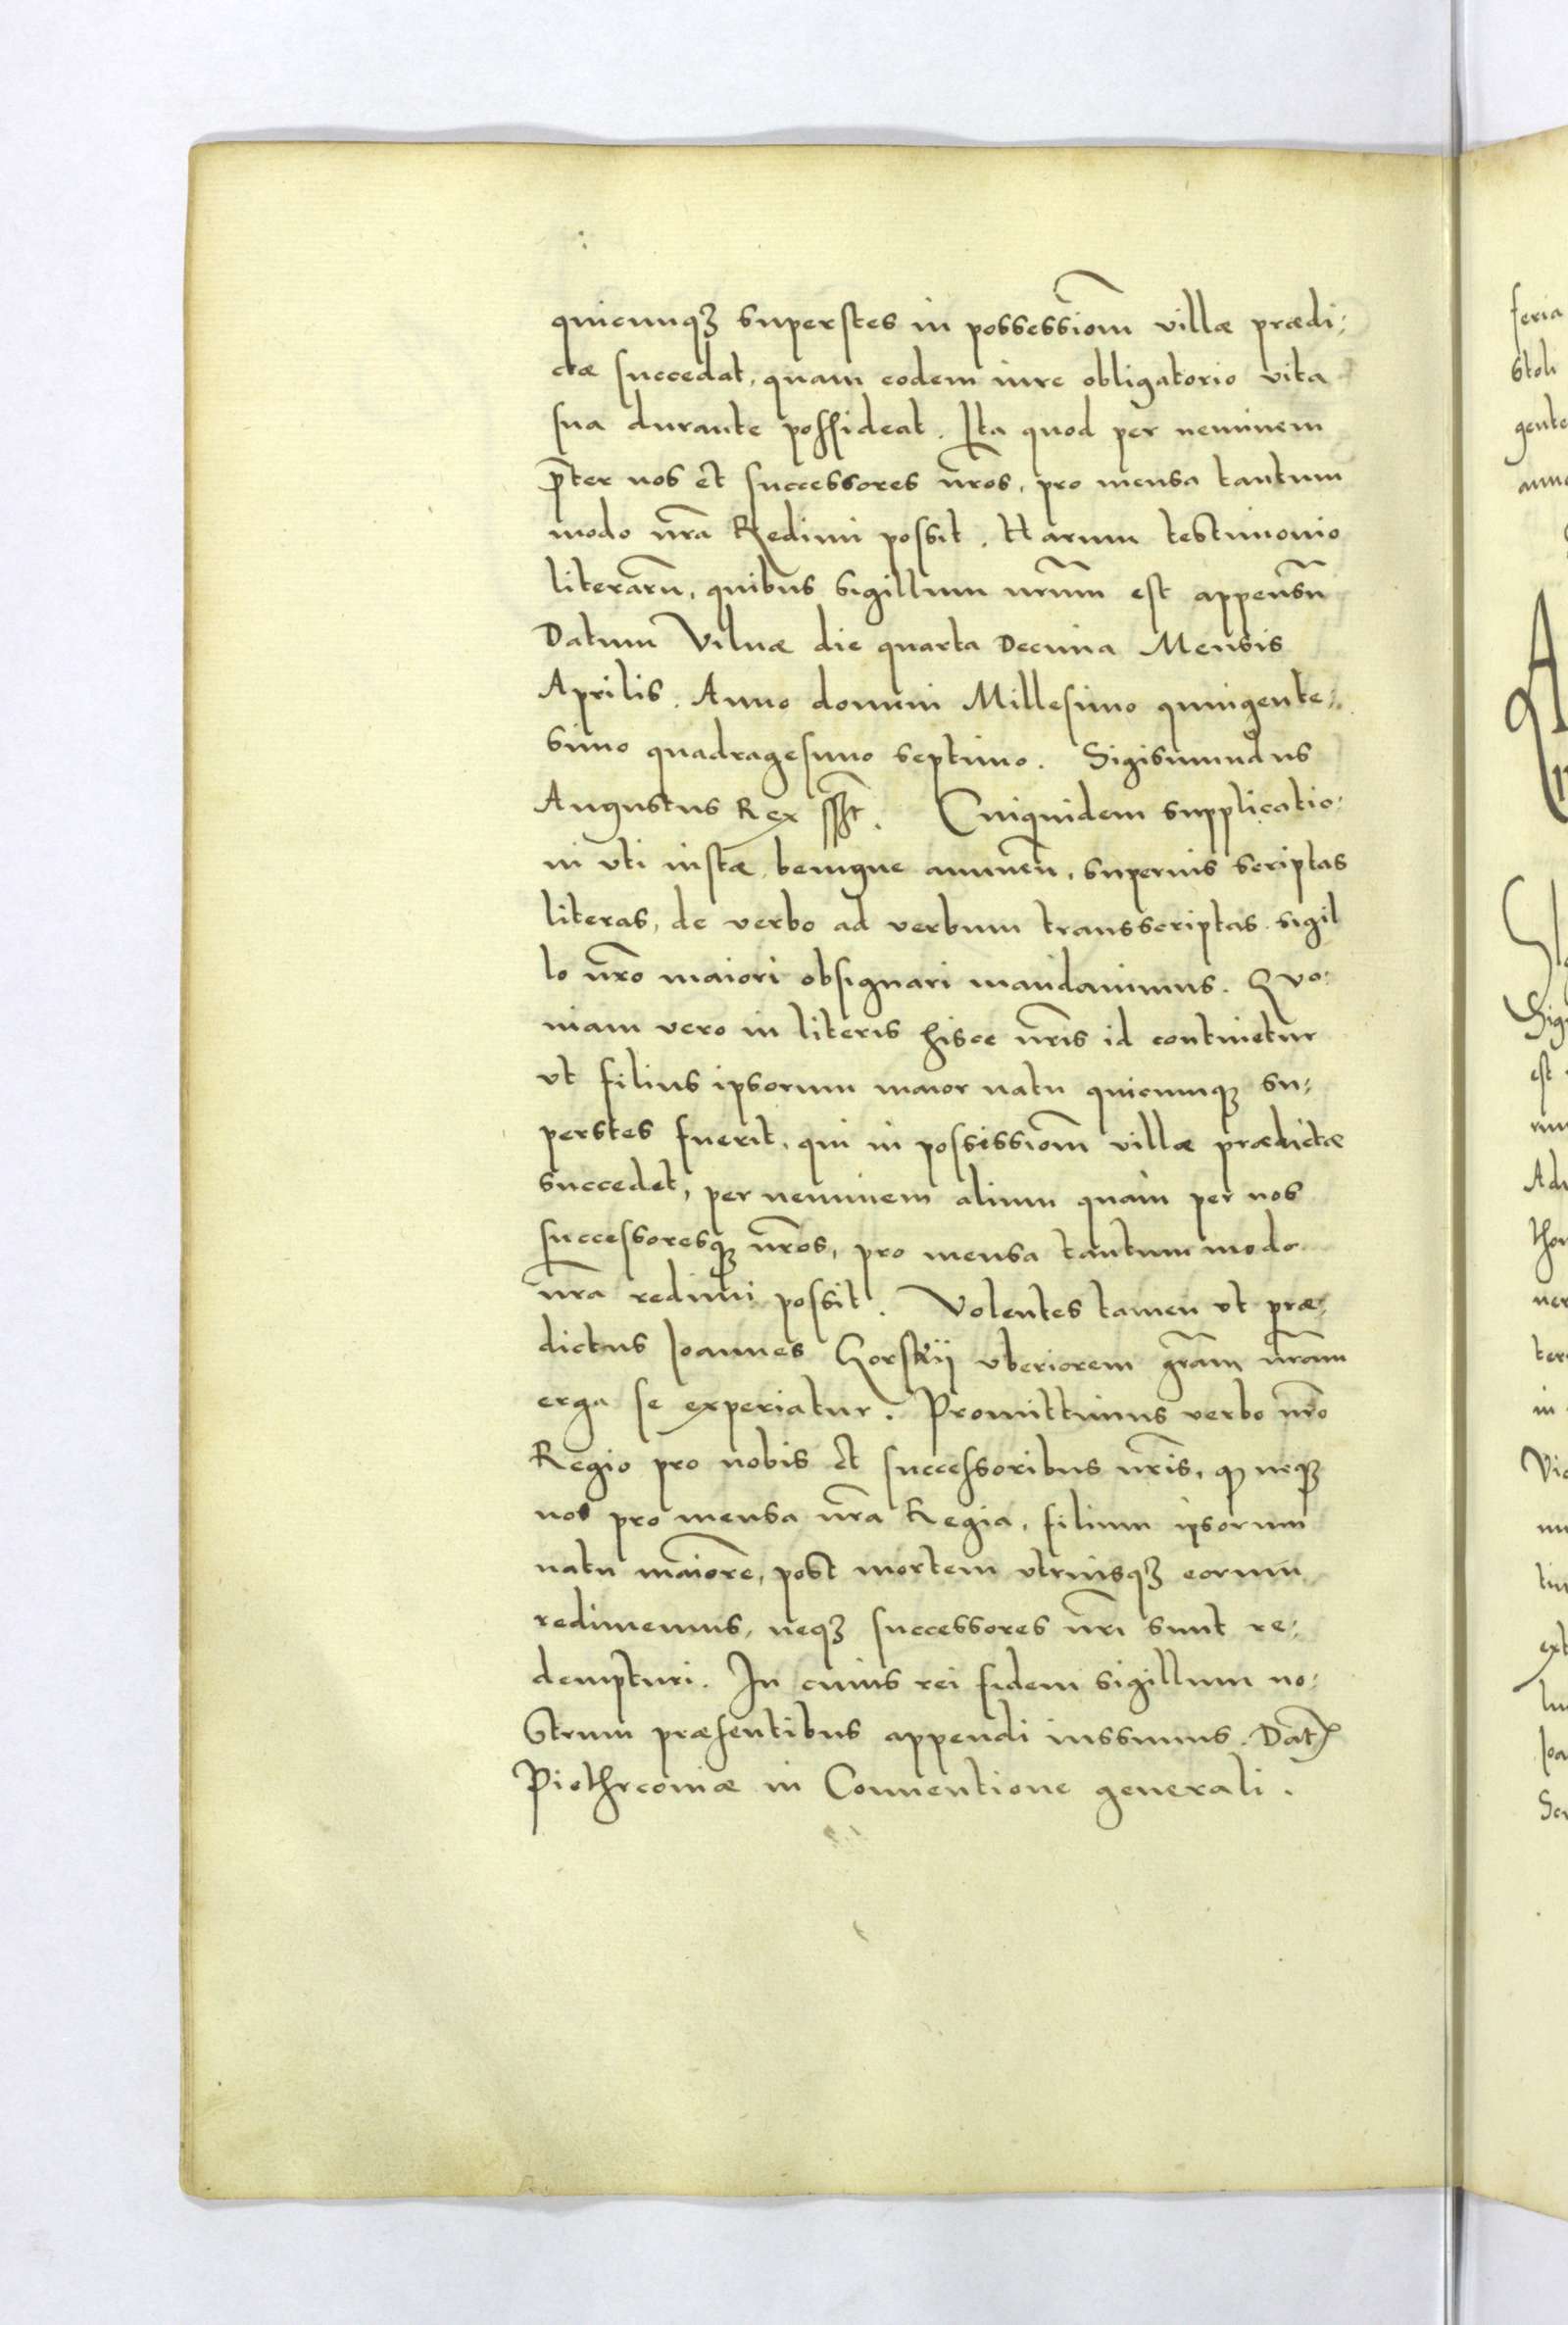 quicunqꝫ superstes in possessiom̃ villæ prædi:
ctæ succedat, quam eodem iure obligatorio vita
sua durante possideat. Ita quod per neminem
p̃ter nos et successores nr̃os, pro mensa tantum
modo nr̃a Redimi possit. Harum testimonio
literarũ, quibus sigillum nrũm est appensũ
Datum Vilnæ die quarta Decima Mensis
Aprilis. Anno domini Millesimo quingente:
simo quadragesimo septimo. Sigismundus
Augustus Rex sst̃. Cuiquidem supplicatio:
ni vti iustæ benigne annueñ, superius scriptas
literas, de verbo ad verbum transscriptas sigil
lo nr̃o maiori obsignari mandauimus. Quo:
niam vero in literis hisce nr̃is id continetur
vt filius ipsorum maior natu quicunqꝫ su:
perstes fuerit, qui in possessiom̃ villæ prædictæ
succedet, per neminem alium quam per nos
successoresqꝫ nr̃os, pro mensa tantummodo
nr̃a redimi possit. Volentes tamen vt præ:
dictus Joannes Gorskij vberiorem gr̃am nr̃am
erga se experiatur. Promittimus verbo nr̃o
Regio pro nobis et successoribus nr̃is, qꝫ neqꝫ
nos pro mensa nr̃a Regia, filium ipsorum
natu maiorẽ, post mortem vtriusqꝫ eorum
redimemus, neqꝫ successores nr̃i sunt re:
dempturi. In cuius rei fidem sigillum no:
strum præsentibus appendi iussimus. Dat̃
Piothrcouiæ in Conuentione generali.